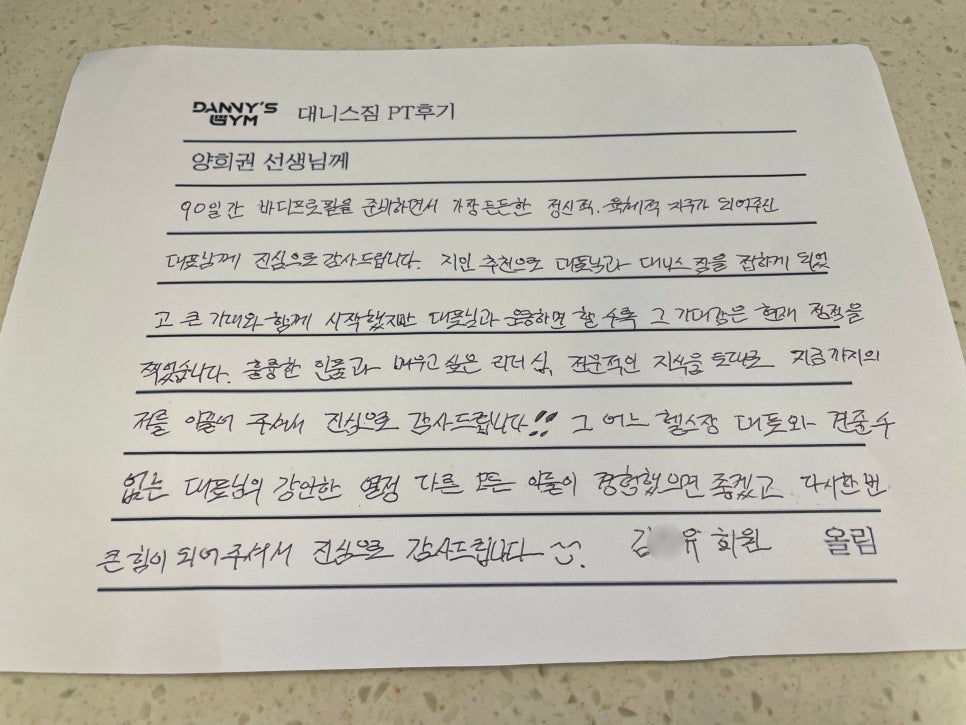 DANNY'S GYM 대니스짐 PT후기
양희권 선생님께
90일간 바디프로필을 준비하면서 가장 든든한 정신적. 육체적 지주가 되어주신
대표님께 진심으로 감사드립니다. 지인 추천으로 대표님과 대니스 짐을 접하게 되었
고 큰 기대와 함께 시작했지만 대표님과 운동하면 할 수록 그 기대감은 현재 정점을
찍었습니다. 훌륭한 인품과 배우고 싶은 리더십, 전문적인 지식을 토대로 지금까지의
저를 이끌어 주셔서 진심으로 감사드립니다!! 그 어느 헬스장 대표와 견줄 수
없는 대표님의 강인한 열정 다른 모든 이들이 경험했으면 좋겠고 다시한번
큰 힘이 되어주셔서 진심으로 감사드립니다. 김 유 회원 올림